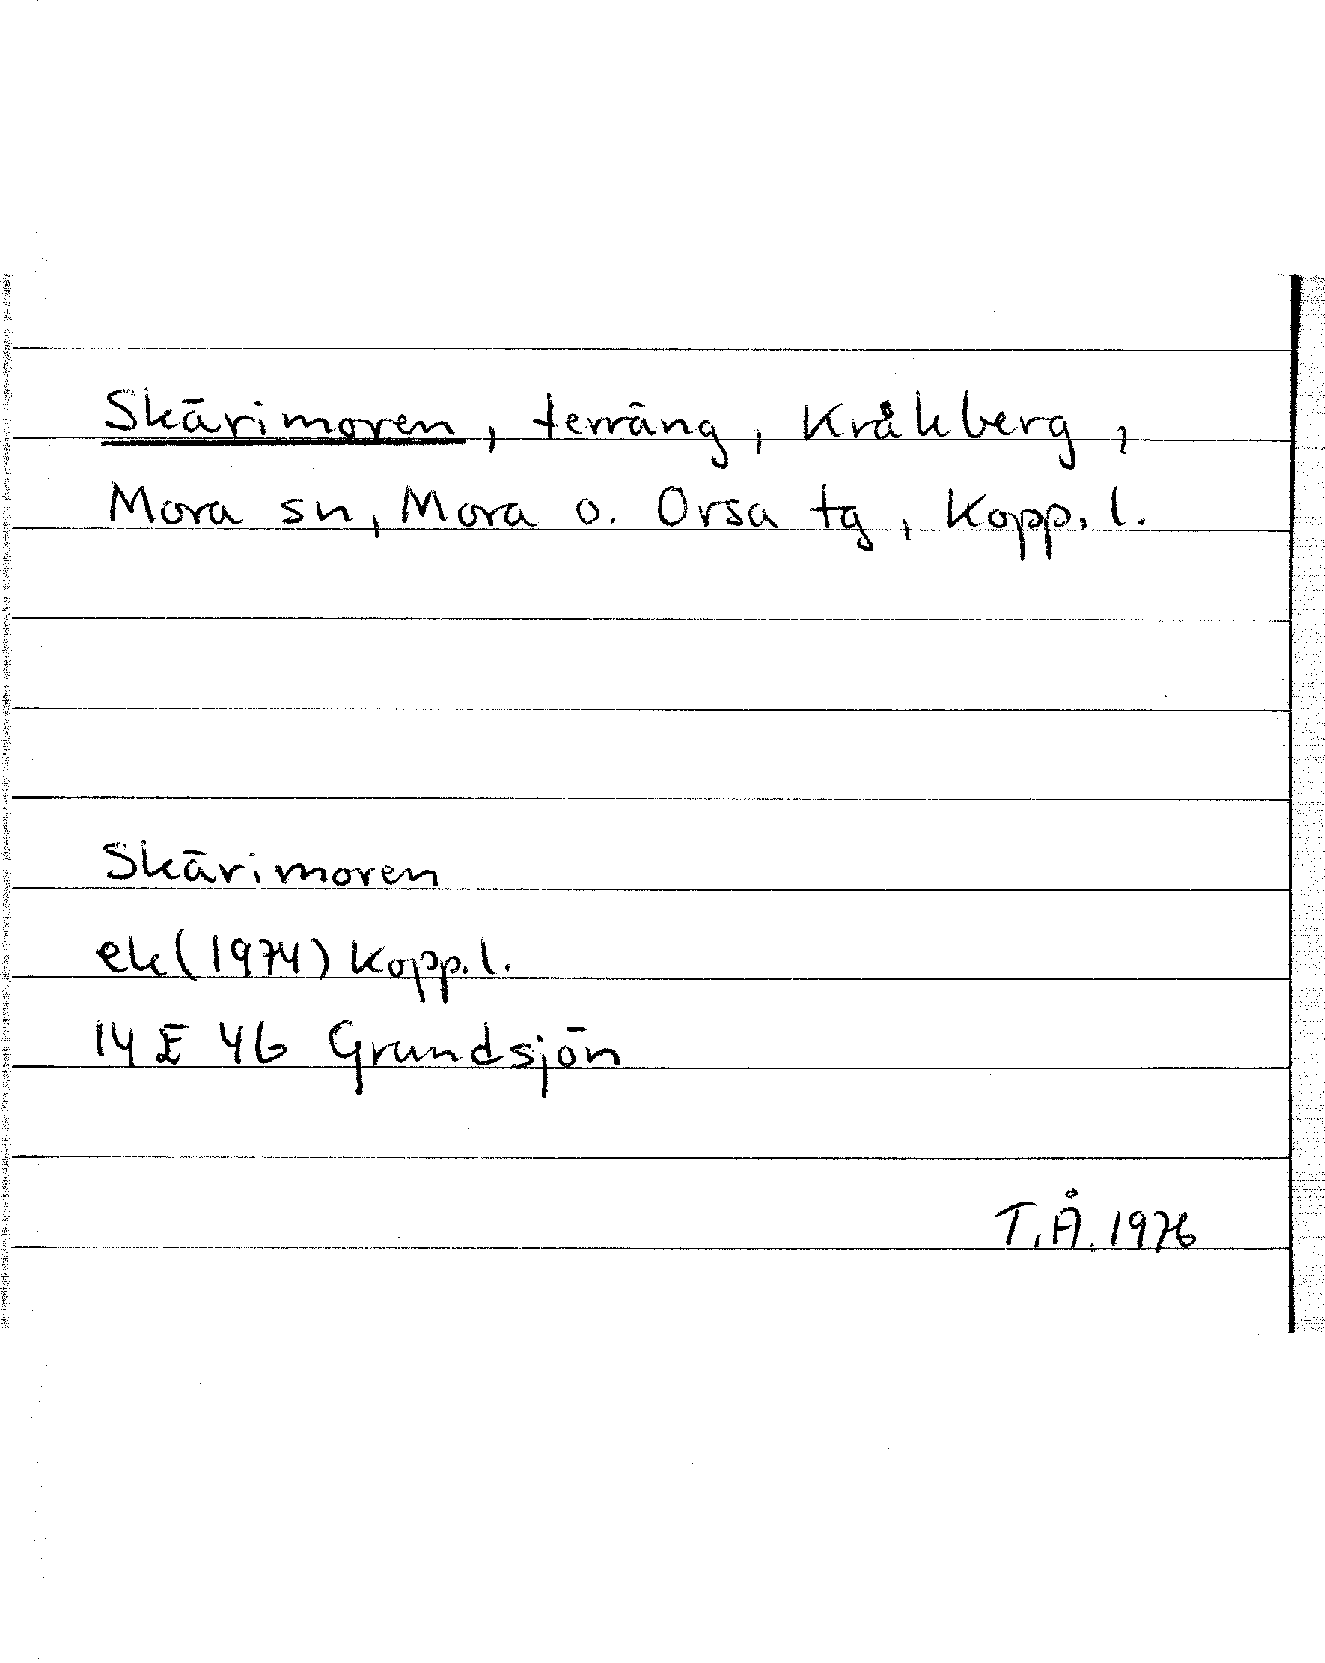 Skärimoren, terräng, Kråkberg,
Mora sn, Mora o. Orsa tg, Kopp. l.
Skärimoren
ek (1974) Kopp. l.
14 E 4b Grundsjön
T.Å. 1976